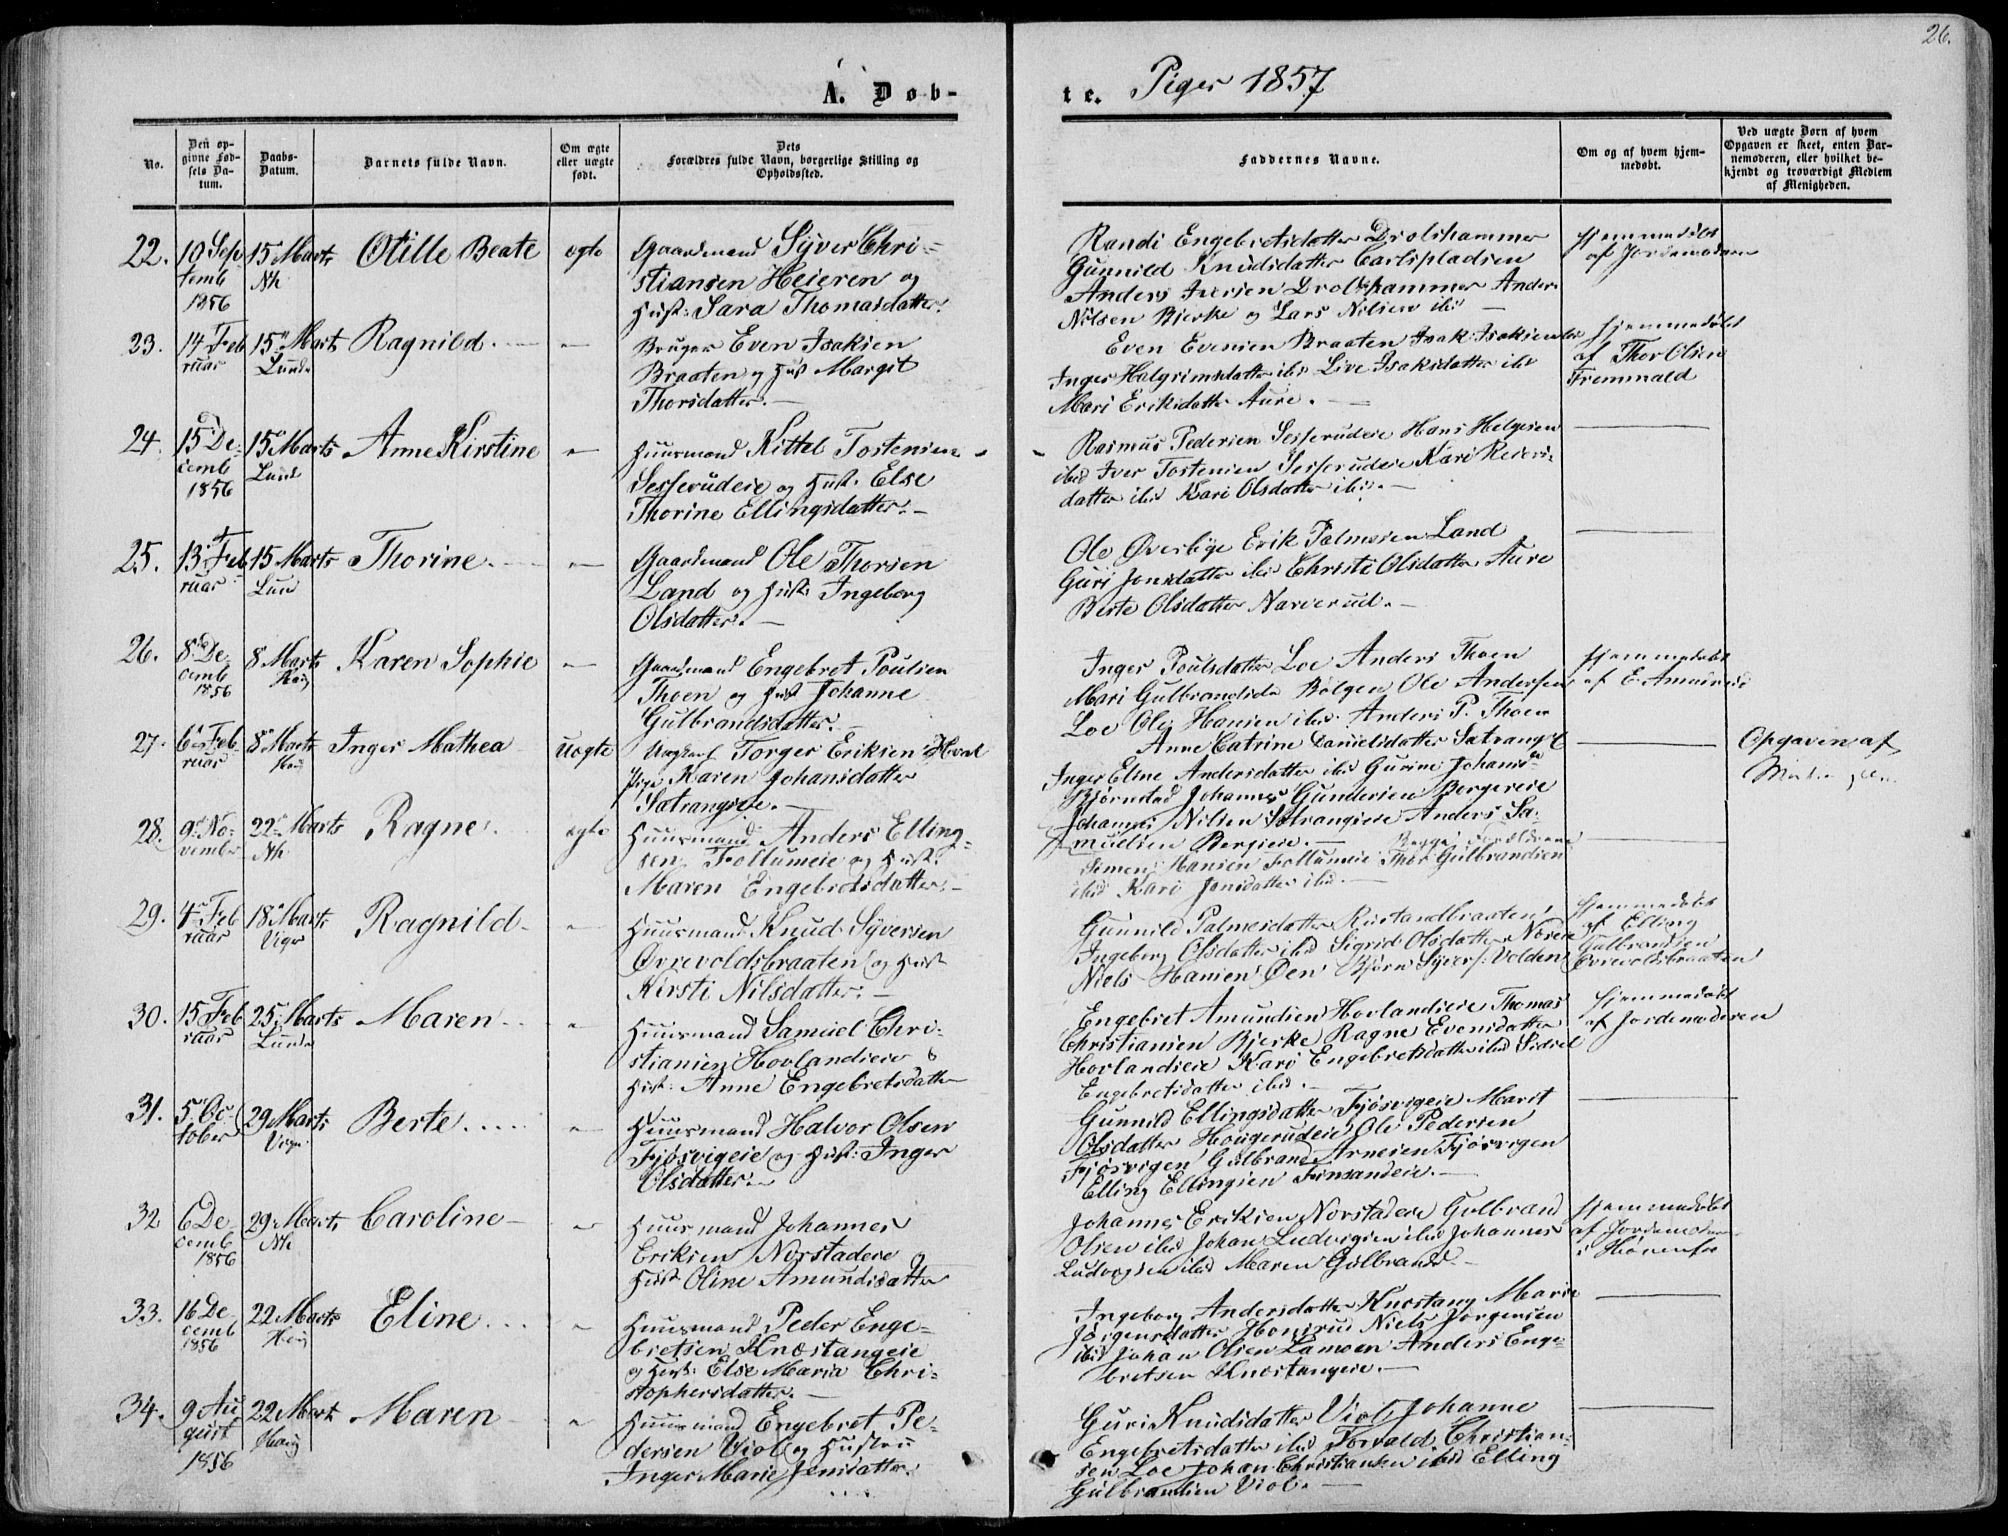 26.
A. Døb-
te. Piger 1857
No.
Den op-
givne Fød-
sels Da-
tum.
Daabs-
Datum.
Barnets fulde Navn.
Om ægte
eller uægte
født.
Dets
Forældres fulde Navn, borgerlige Stilling og
Opholdssted.
Faddernes Navne.
Om og af hvem hjem-
medøbt.
Ved uægte Børn af hvem
Opgaven er skeet, enten Bar-
nemoderen, eller hvilket be-
kjendt og troværdigt Medlem
af Menigheden.
22.
10 Sep
temb
1856
15 Marts
Nh
Otille Beate
ægte
Gaardmand Syver Chri-
stiansen Heieren og
Hust: Sara Thomasdatter.
Randi Engebretsdatter Drolshammer
Gunnild Knudsdatter Carlspladsen
Anders Iversen Drolshammer Anders
Nilsen Bjerke og Lars Nilsen ibd
Hjemmedøbt
af Jordemoderen
23.
14 Feb
ruar
15 Marts
Lunde
Ragnild.
Bruger Even Isaksen
Braaten og Hust Margit
Thorsdatter.
Even Evensen Braaten Isak Isaksen ibd
Inger Halgrimsdatter ibd Live Isaksdatter ibd
Mari Eriksdatter Aure.
Hjemmedøbt
af Thor Olsen
Tremmald
24.
15 De-
cemb
1856
15 Marts
Lund
Anne Kirstine
Huusmand Kittel Tostensen
Sesserudeie og Hust. Else
Thorine Ellingsdatter.
Rasmus Pedersen Sesserudeie Hans Helgesen
ibid Iver Tostensen Sesserudeie Kari Reiers-
datter ibd Kari Olsdatter ibd.
25.
13 Feb
ruar
15 Marts
Lund
Thorine.
Gaardmand Ole Thorsen
Land og Hust: Ingeborg
Olsdatter.
Ole Øverbye Erik Palmesen Land
Guri Jonsdatter ibd Christi Olsdatter Aure
Berte Olsdatter Narverud.
26.
8 De
cemb
1856
8 Marts
Haug
Karen Sophie
Gaardmand Engebret Poulsen
Thoen og Hust Johanne
Gulbrandsdatter.
Inger Poulsdatter Loe Anders Thoen
Mari Gulbrandsda Bølgen Ole Andersen
Loe Ole Hansen ibid Anders P. Thoen
Hjemmedøbt
27.
6 Feb
ruar
8 Marts
Inger Mathea
uægte
Ungkarl Torger Eriksen Hval
Pige Karen Johansdatter
Sætrangeie.
Anne Catrine Danielsdatter Sætrang
Inger Eline Andersdatter ibd Gurine Johansda
Bjørnstad Johannes Gundersen Bergereie
Johannes Nilsen Sætrangeie Anders Sa-
muelsen Bergeie.
Opgaven af
28.
9 No-
vember
22 Marts
Nh
Ragne.
ægte
Huusmand Anders Elling-
sen Follumeie og Hust:
Maren Engebretsdatter.
Begge Forældrene
Simen Hansen Follumeie Thor Gulbrandsen
ibid Kari Jensdatter ibd.
29.
4 Feb
ruar
18 Marts
Viger
Ragnild
Huusmand Knud Syversen
Ørrevoldsbraaten og Hust
Kirsti Nilsdatter.
Gunnild Palmesdatter Rustandbraaten
Ingeborg Olsdatter ibid Sigrid Olsdatter Næseie
Niels Hansen Øen Bjørn Syvers: Volden
Hjemmedøbt
af Elling
Gulbrandsen
Ørrevoldsbraaten
30.
15 Feb
ruar
25 Marts
Lunde
Maren
Huusmand Samuel Chri-
stiansen Hovlandseie &
Hust: Anne Engebretsdatter
Engebret Amundsen Hovlandseie Thomas
Christiansen Bjerke Ragne Evensdatter
Hovlandseie Kari Engebretsdatter ibid Sidsel
Engebretsdatter ibid.
Hjemmedøbt
af Jordemoderen
31.
5 Oc
tober
29 Marts
Viger
Berte
Huusmand Halvor Olsen
Fjøsvigeie og Hust: Inger
Olsdatter.
Gunnild Ellingsdatter Fjøsvigeie Marit
Olsdatter Hougerudeie Ole Pedersen
Fjøsvigen Gulbrand Arnesen Fjøsvigen
Elling Ellingsen Finsandeie.
32
6 De
cemb
1856
29 Marts
Nh
Caroline
Huusmand Johannes
Eriksen Norstadeie og
Hust Oline Amundsdatter
Johannes Eriksen Norstadeie Gulbrand
Olsen ibid Johan Ludvigsen ibid Johannes
Ludvigsen ibid Maren Gulbrandsd.
Hjemmedøbt
af Jordemoderen
i Hønenfos
33.
16 De
cemb
1856
22 Marts
Haug
Eline
Huusmand Peder Enge-
bretsen Knestangeie
og Hust: Else Maria Chri-
stophersdatter.
Ingeborg Andersdatter Knestang Marie
Jørgensdatter Honerud Niels Jørgensen
ibid Johan Olsen Lamoen Anders Enge-
bretsen Knestangeie.
34.
9 Au
gust
1856
22 Marts
Haug
Maren
Huusmand Engebret Pe-
dersen Viol og Hustru
Inger Marie Jensdatter.
Guri Knudsdatter Viol Johanne
Engebretsdatter ibid Torvald Christian-
sen Loe Johan Christiansen ibid Elling
Gulbrandsen Viol.